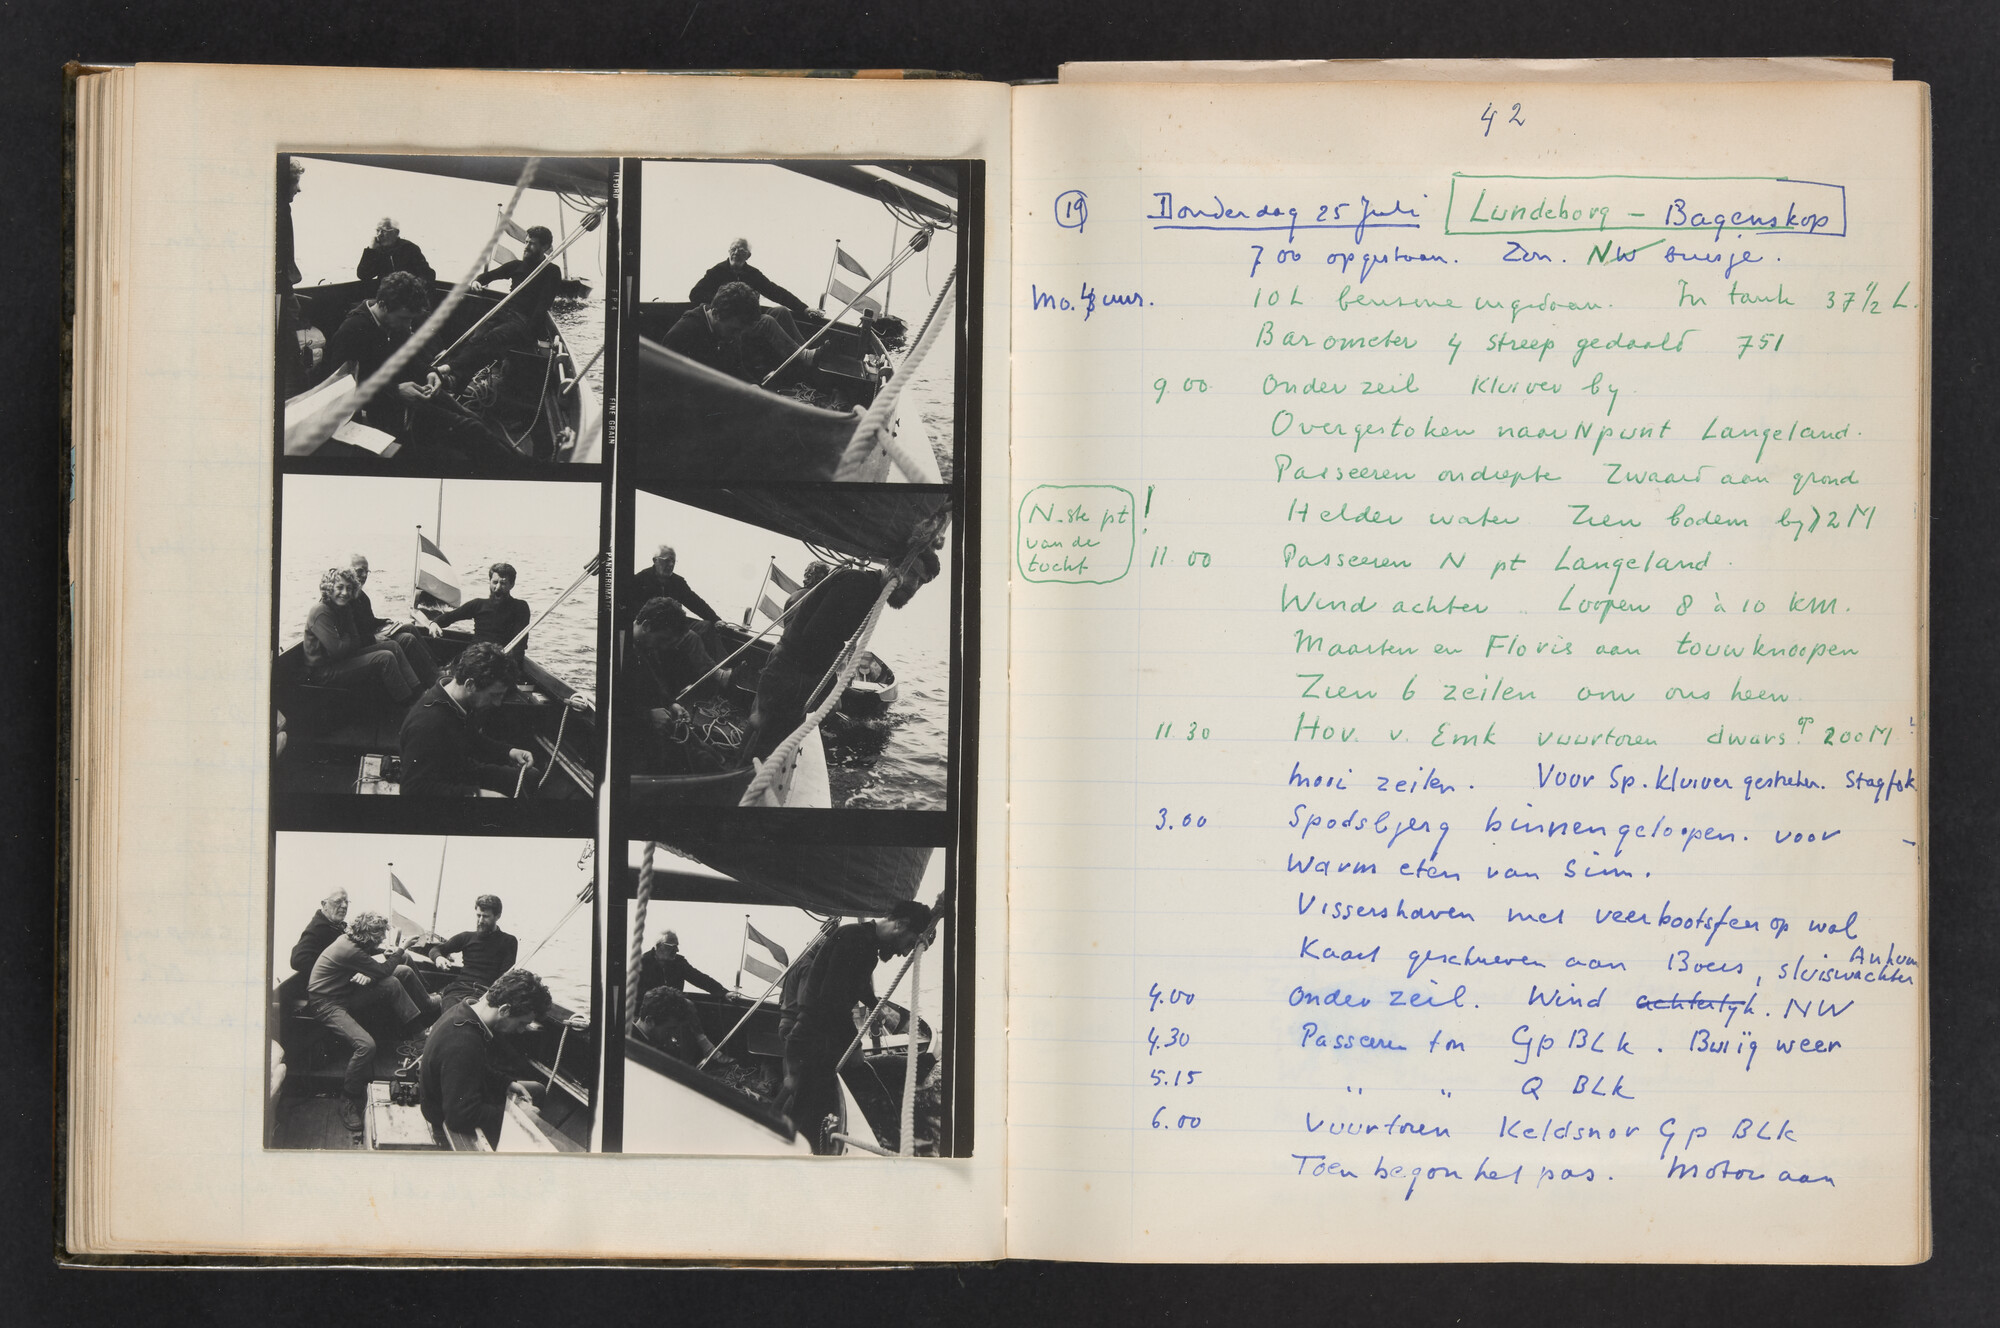 FINE GRAIN
PANCHROMATIC
42
19 Donderdag 25 Juli Lundeborg - Bagenskop
7 00 opgestaan. Zon. NW briesje.
Mo. 4 uur. 10 L benzine ingedaan. In tank 37 1/2 L.
Barometer 4 streep gedaald 751
9 00 Onder zeil Kluiver by.
Overgestoken naar N punt Langeland.
Passeeren ondiepte Zwaard aan grond
N-ste pt van de tocht ! Helder water Zien bodem by 2 M
11 00 Passeeren N pt Langeland.
Wind achter .. Loopen 8 à 10 KM.
Maarten en Floris aan touwknoopen
Zien 6 zeilen om ons heen
11 30 Hov. v. Emk vuurtoren dwars. op 200 M
mooi zeilen. Voor Sp. kluiver gestreken. Stagfok
3.00 Spodsbjerg binnengeloopen. voor
Warm eten van Sim.
Vissershaven met veerbootsfeer op wal
Kaart geschreven aan Boers, sluiswachter
4.00 Onder zeil. Wind achterlyk. NW
4.30 Passeeren ton Gp BLk. Buiïg weer
5.15 " " Q BLk
6.00 Vuurtoren Keldsnor Gp BLk
Toen begon het pas. Motor aan